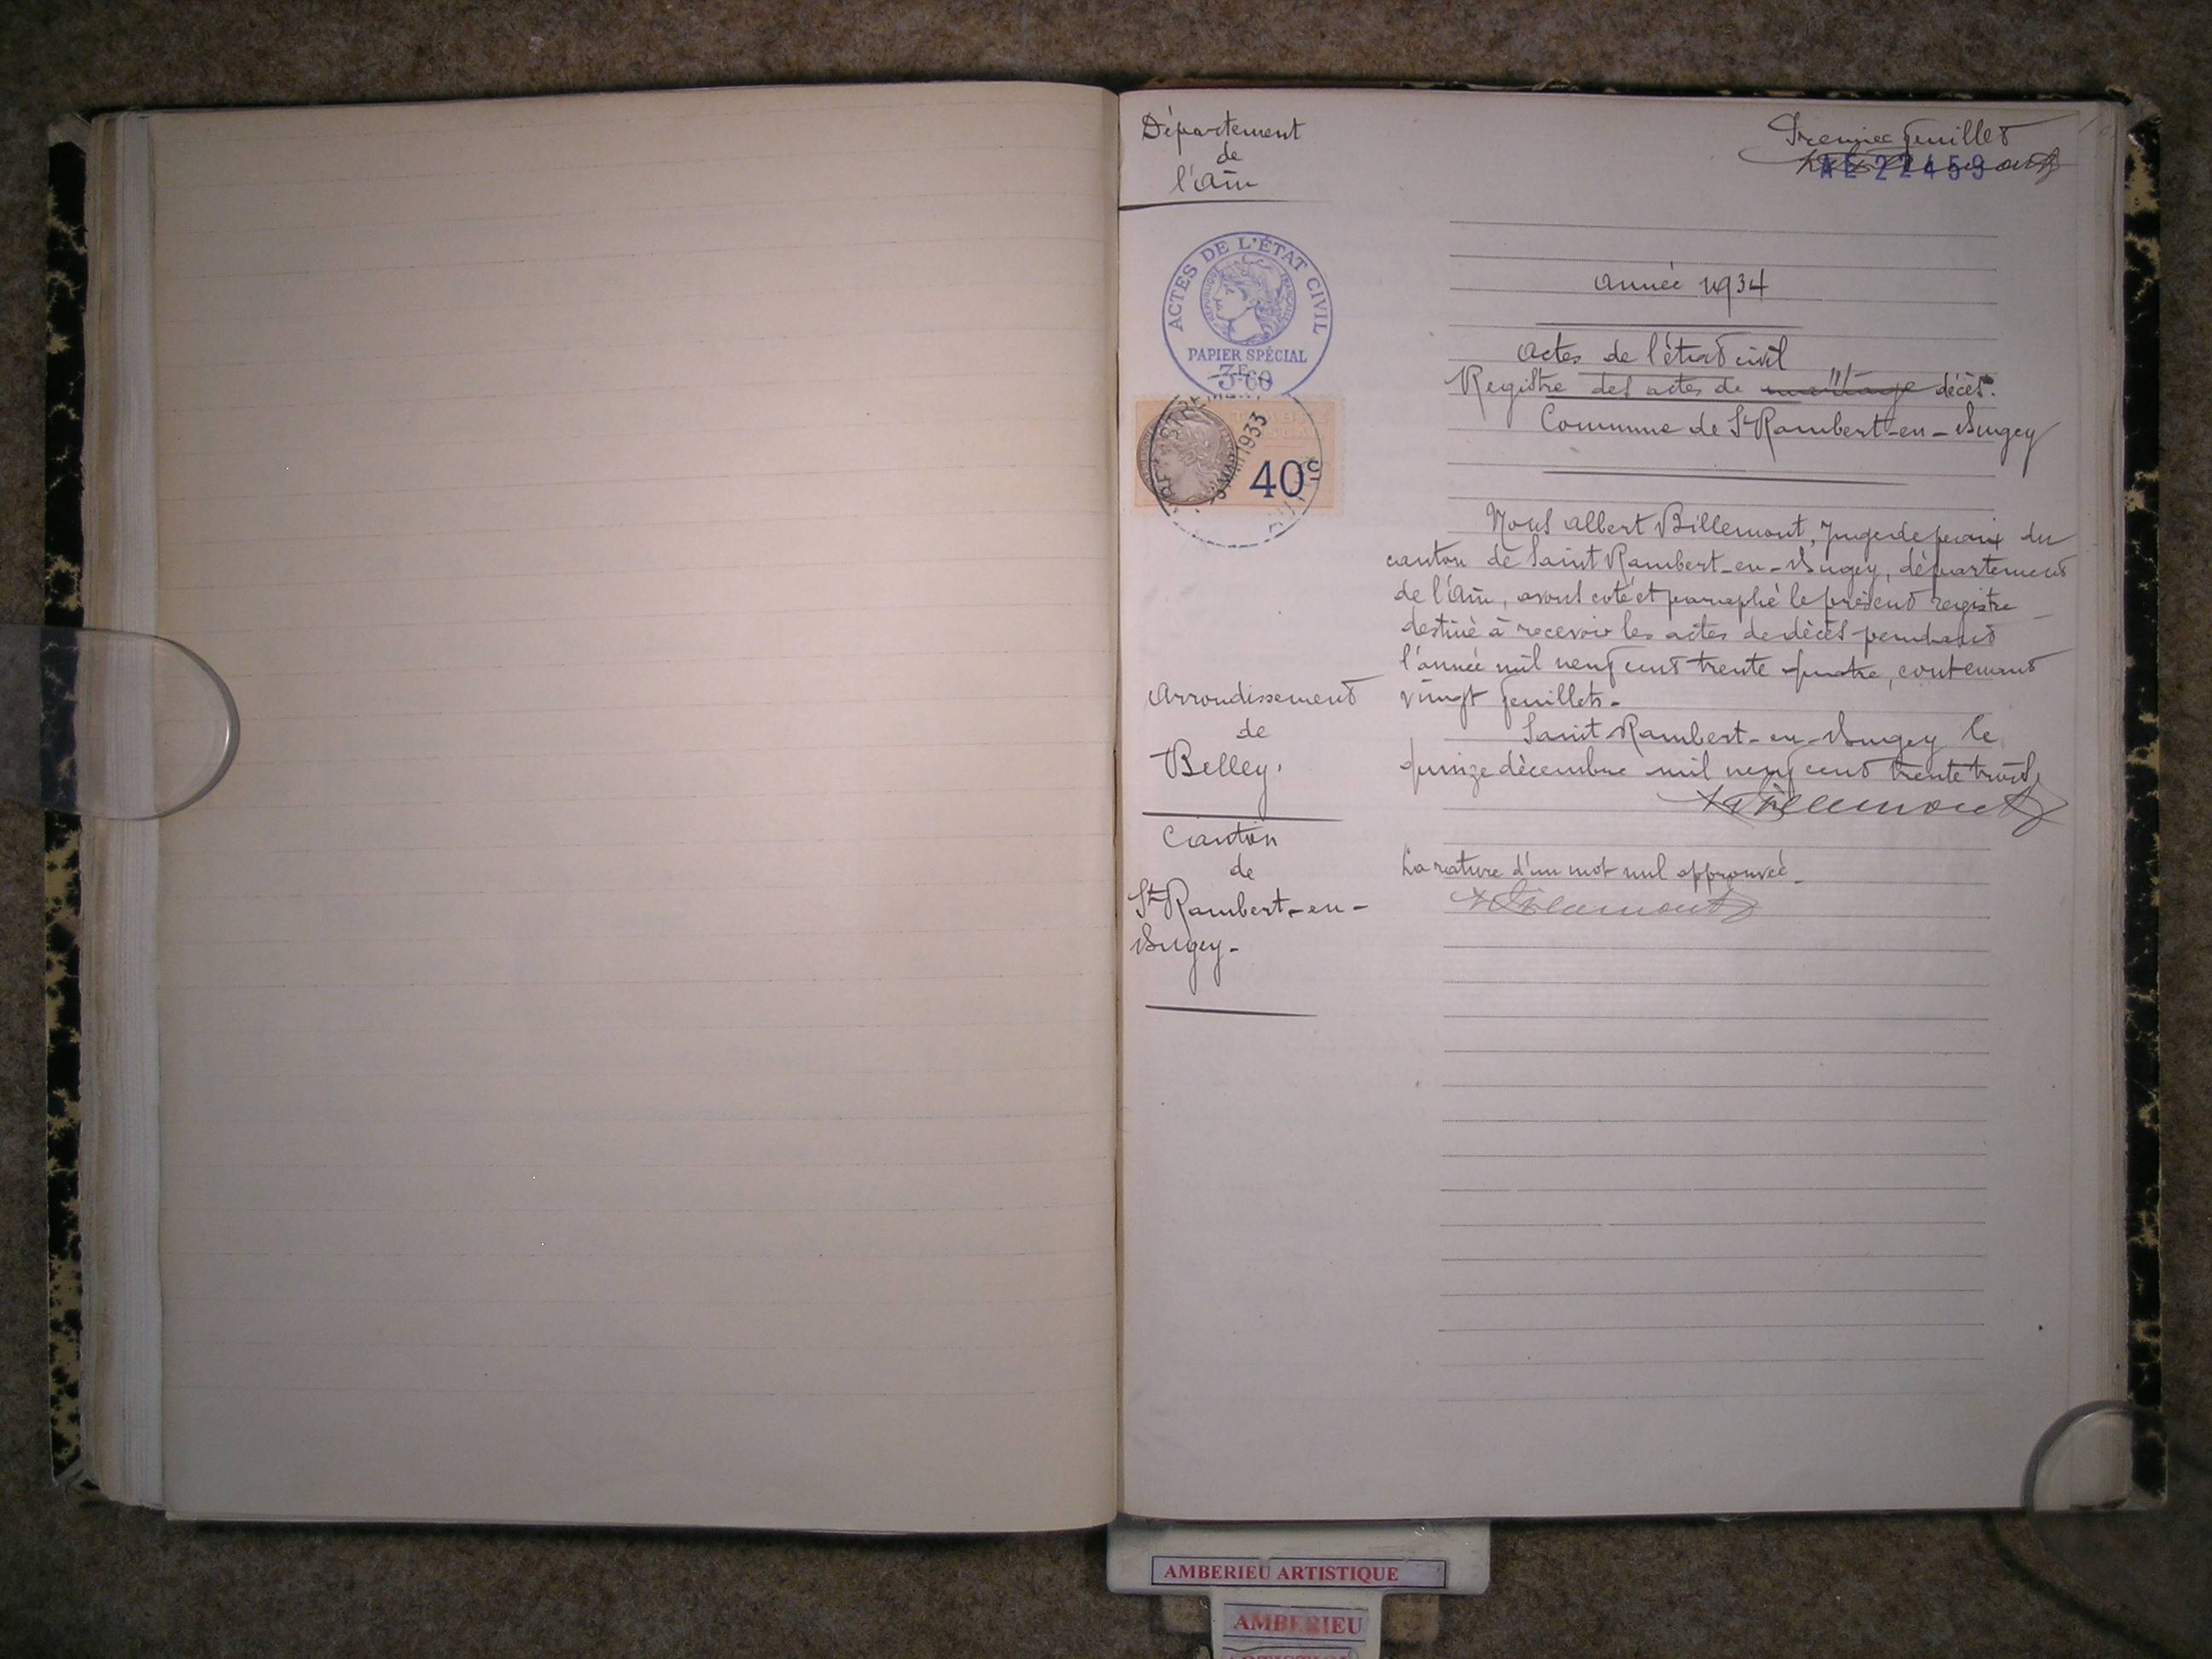 Département
de
l'Ain
Premier feuillet
AE 22459
ACTES DE L'ÉTAT CIVIL
RÉPUBLIQUE FRANÇAISE
PAPIER SPÉCIAL
3F60
1933
40c
Année 1934
Actes de l'état civil
Registre des actes de mariage décès.
Commune de St Rambert-en-Bugey
Nous Albert Billemont, Juge de paix du
canton de Saint Rambert-en-Bugey, département
de l'Ain, avons coté et paraphé le présent registre
destiné à recevoir les actes de décès pendant
l'année mil neuf cent trente quatre, contenant
vingt feuillets.
Saint Rambert-en-Bugey le
quinze décembre mil neuf cent trente trois,
ABillemont
La rature d'un mot nul approuvée.
ABillemont
Arrondissement
de
Belley.
Canton
de
St Rambert-en-
Bugey-
AMBERIEU ARTISTIQUE
AMBERIEU